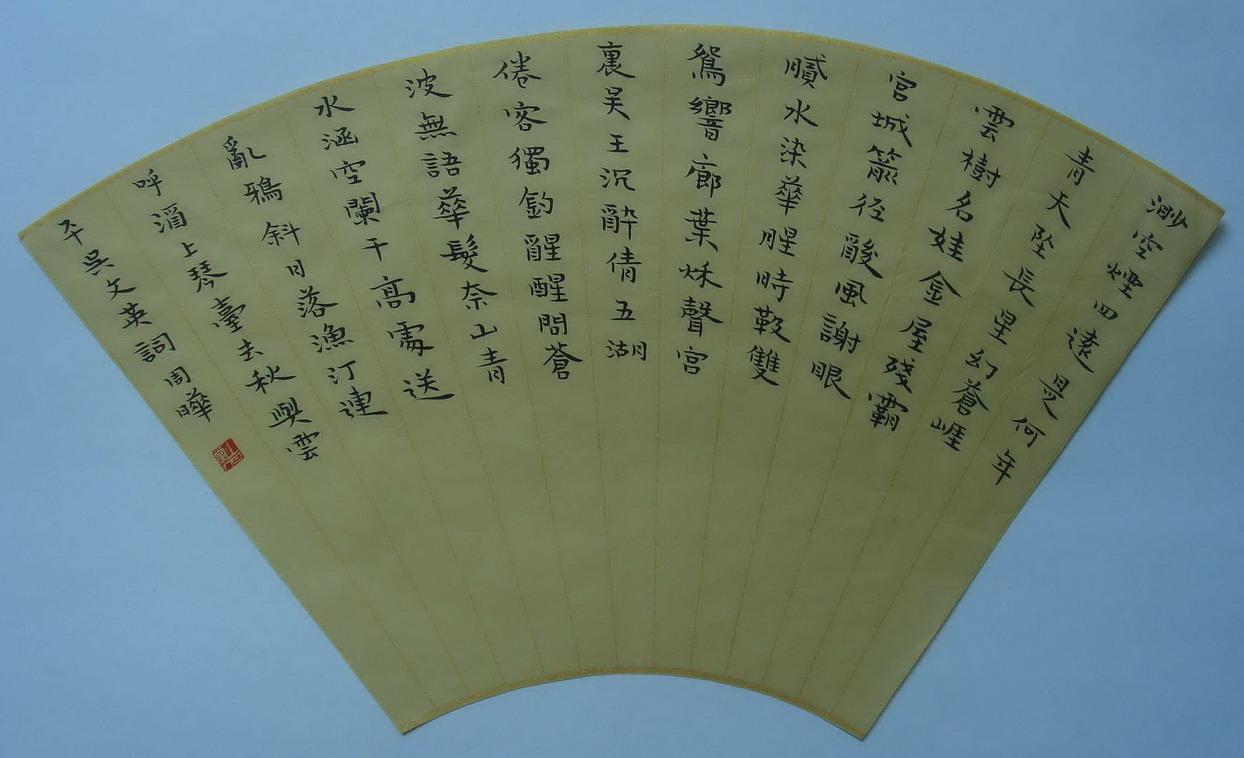 渺空煙四遠是何年
青天墜長星幻蒼崖
雲樹名娃金屋殘霸
宮城箭径酸風謝眼
膩水染華腥時靸雙
鴛響廊葉秋聲宮
裏吴王沉醉倩五湖
倦客獨釣醒醒問蒼
波無語華髮奈山青
水涵空闌干高處送
亂鴉斜日落漁汀連
呼酒上琴臺去秋興雲
平吳文英詞周曄